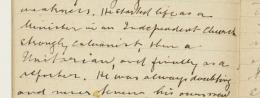 weakness. He started life as a
Minister in an Independent Church
strongly Calvanistic then a
Unitarian, and finally as a
reporter. He was always doubting
and never knew his own